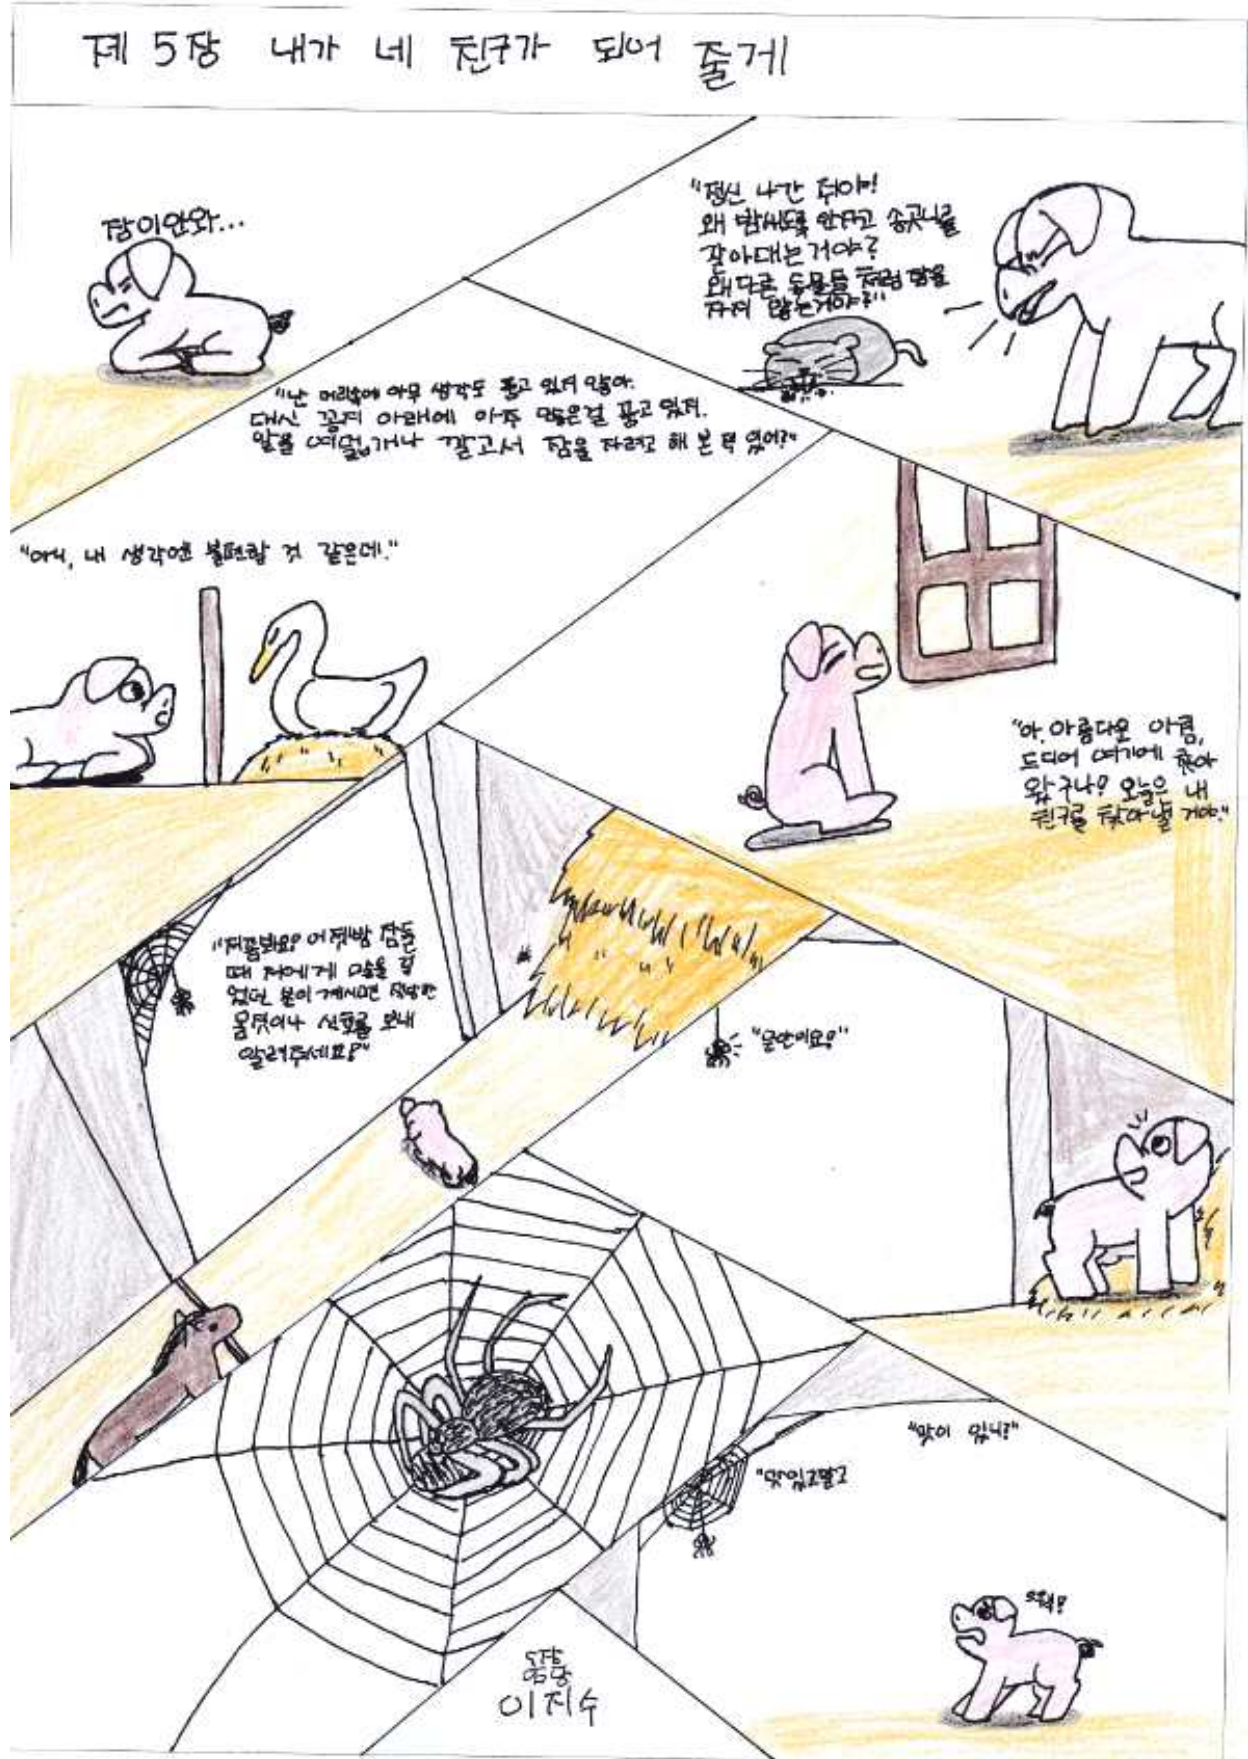 제 5장 내가 네 친구가 되어 줄게
잠이안와...
"정신 나간 쥐야!
왜 밤새도록 안자고 송곳니를
갈아대는 거야?
왜 다른 동물들 처럼 잠을
자지 않는거야?"
"난 머릿속에 아무 생각도 품고 있지 않아.
대신 꽁지 아래에 아주 많은걸 품고 있지.
알을 여덟개나 깔고서 잠을 자려고 해 본 적 있어?"
"아니, 내 생각엔 불편할 것 같은데."
"아, 아름다운 아침,
드디어 여기에 찾아
왔구나? 오늘은 내
친구를 찾아낼 거야."
"저좀봐요? 어젯밤 잠들
때 저에게 말을 걸
었던 분이 계시면 적당한
몸짓이나 신호를 보내
알려주세요?"
"문안이요?"
"맛이 있니?"
"맛있고말고
으웩?
5장
담당
이지수